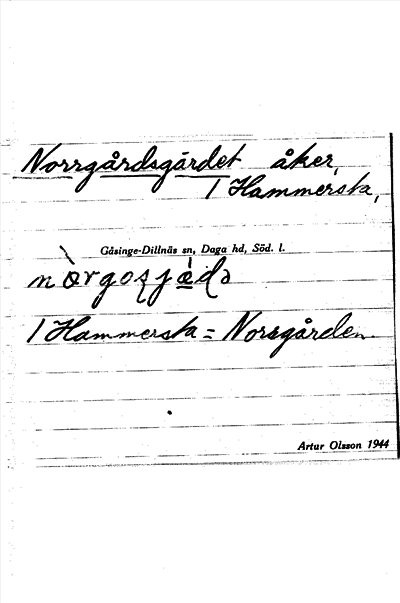 Norrgårdsgärdet åker,
1 Hammersta,
Gåsinge-Dillnäs sn, Daga hd, Söd. l.
1 Hammersta = Norrgården.
Artur Olsson 1944